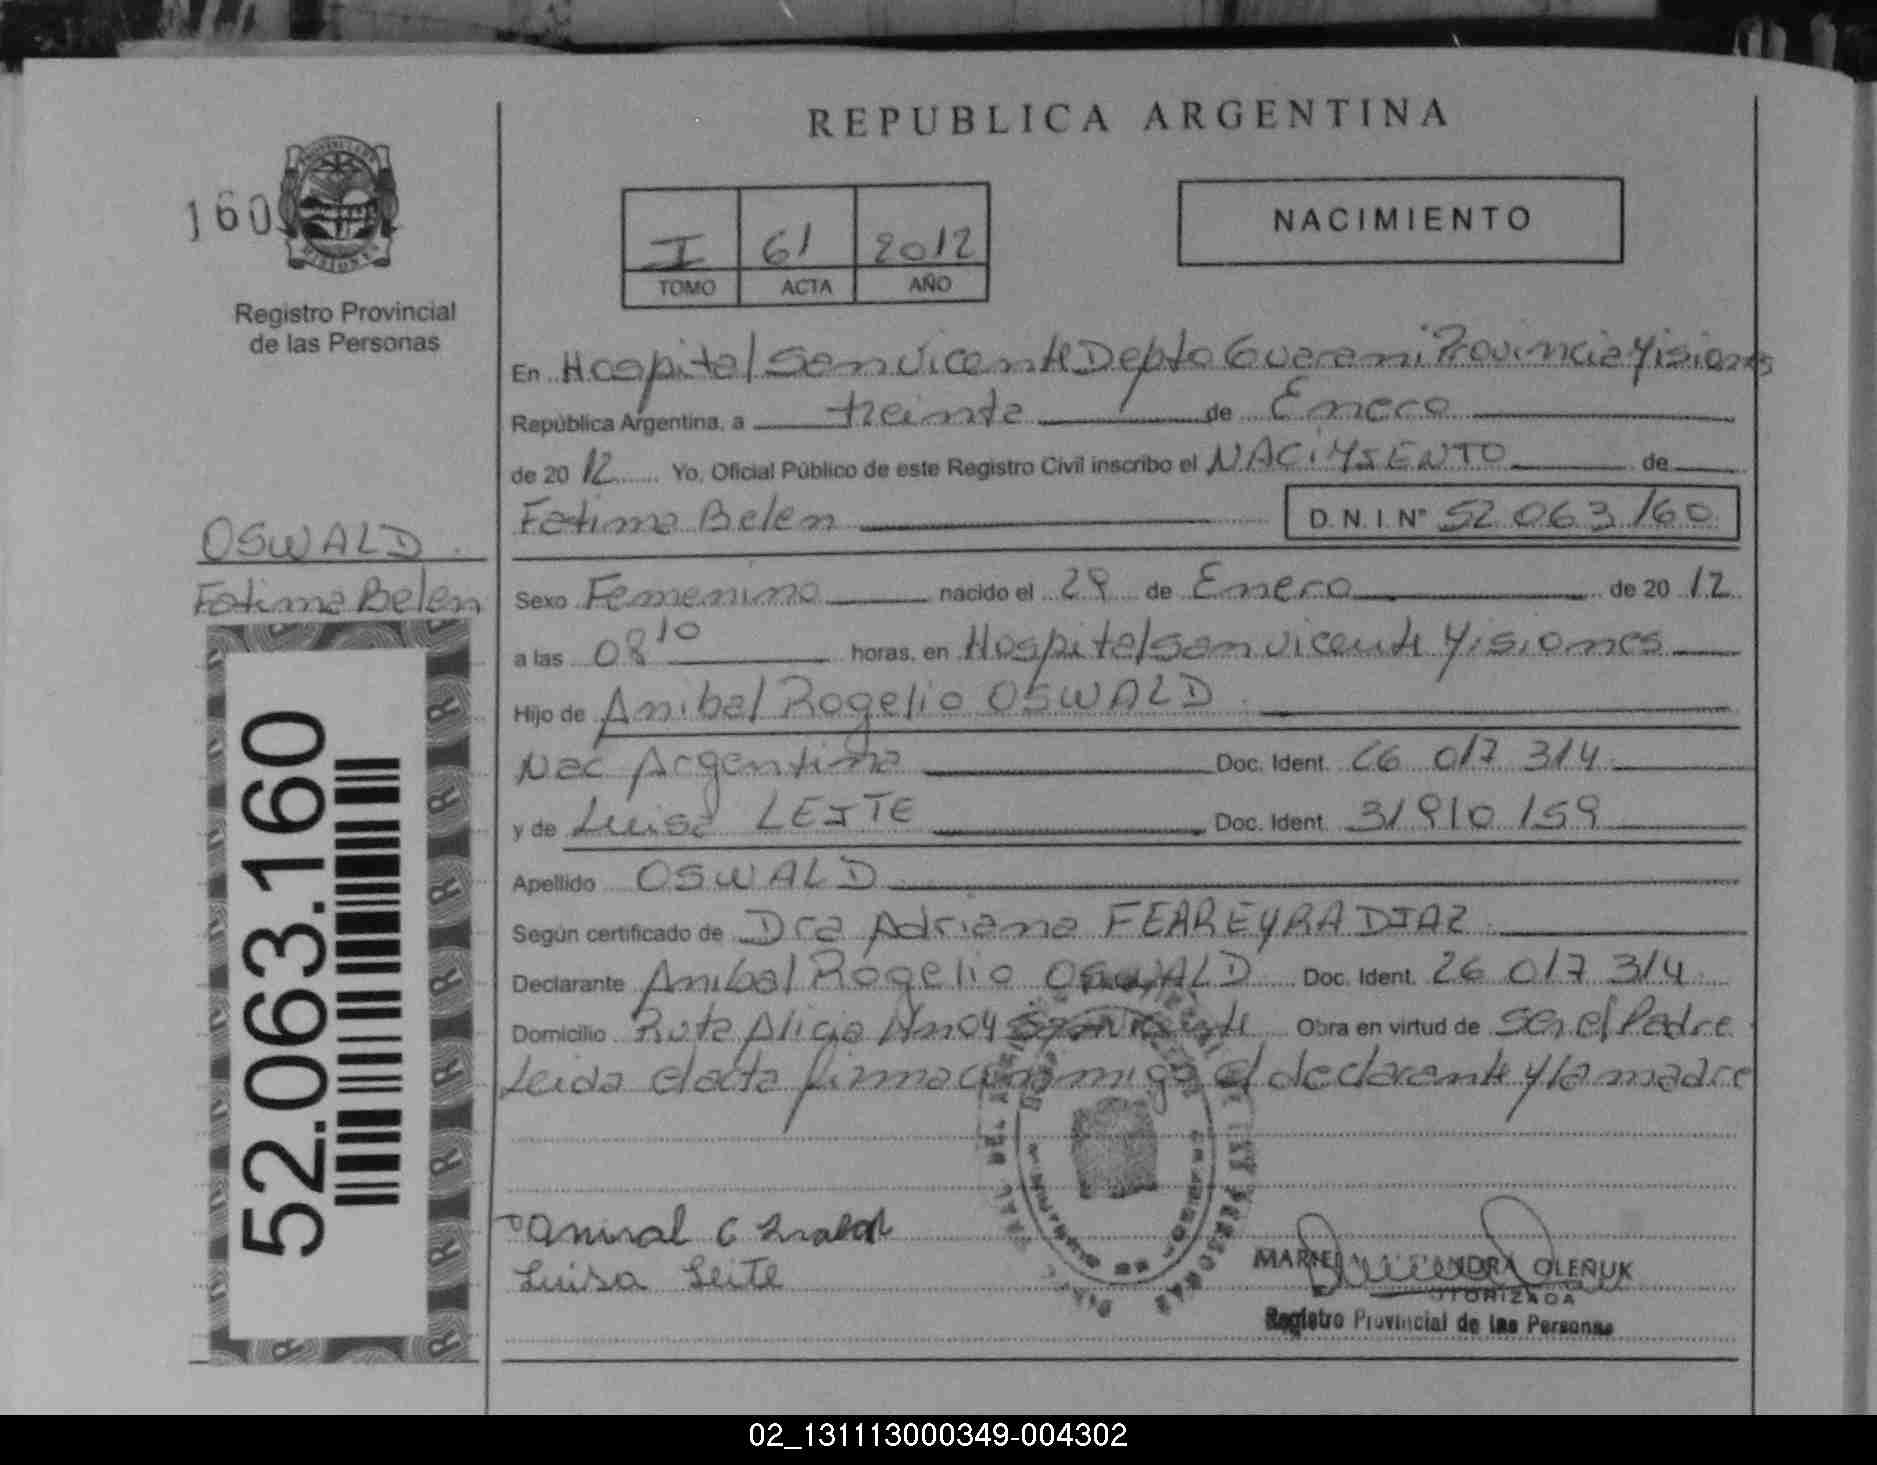 REPUBLICA ARGENTINA
160
Registro Provincial
de las Personas
I 61 2012
TOMO ACTA AÑO
NACIMIENTO
En Hospital San Vicente Depto Guarani Provincia Misiones
República Argentina, a treinta de Enero
de 20 12 Yo, Oficial Público de este Registro Civil inscribo el NACIMIENTO de
Fatima Belen D.N.I. N° 52 063 160
OSWALD
Fatima Belen
52.063.160
Sexo Femenino nacido el 29 de Enero de 20 12
a las 08 10 horas, en Hospital San Vicente Misiones
Hijo de Anibal Rogelio OSWALD
Nac Argentina Doc. Ident. 26 017 314
y de Luisa LEITE Doc. Ident. 31 910 159
Apellido OSWALD
Según certificado de Dra Adriana FERREYRA DIAZ
Declarante Anibal Rogelio OSWALD Doc. Ident. 26 017 314
Domicilio Ruta Alicia San Vicente Obra en virtud de ser el Padre
Leida el acta firma conmigo el declarante y la madre
Luisa Leite
OLEÑUK
Registro Provincial de las Personas
02_131113000349-004302